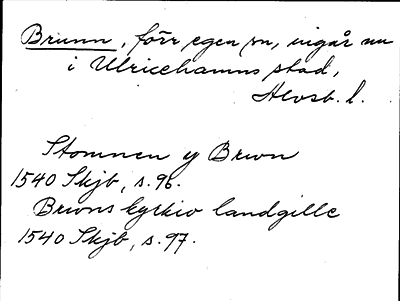 Brunn, förr egen sn, ingår nu
i Ulricehamns stad,
Älvsb. l.
Stomnen y Brwn
1540 Skjb, s. 96.
Brwns kyrkio landgille
1540 Skjb, s. 97.